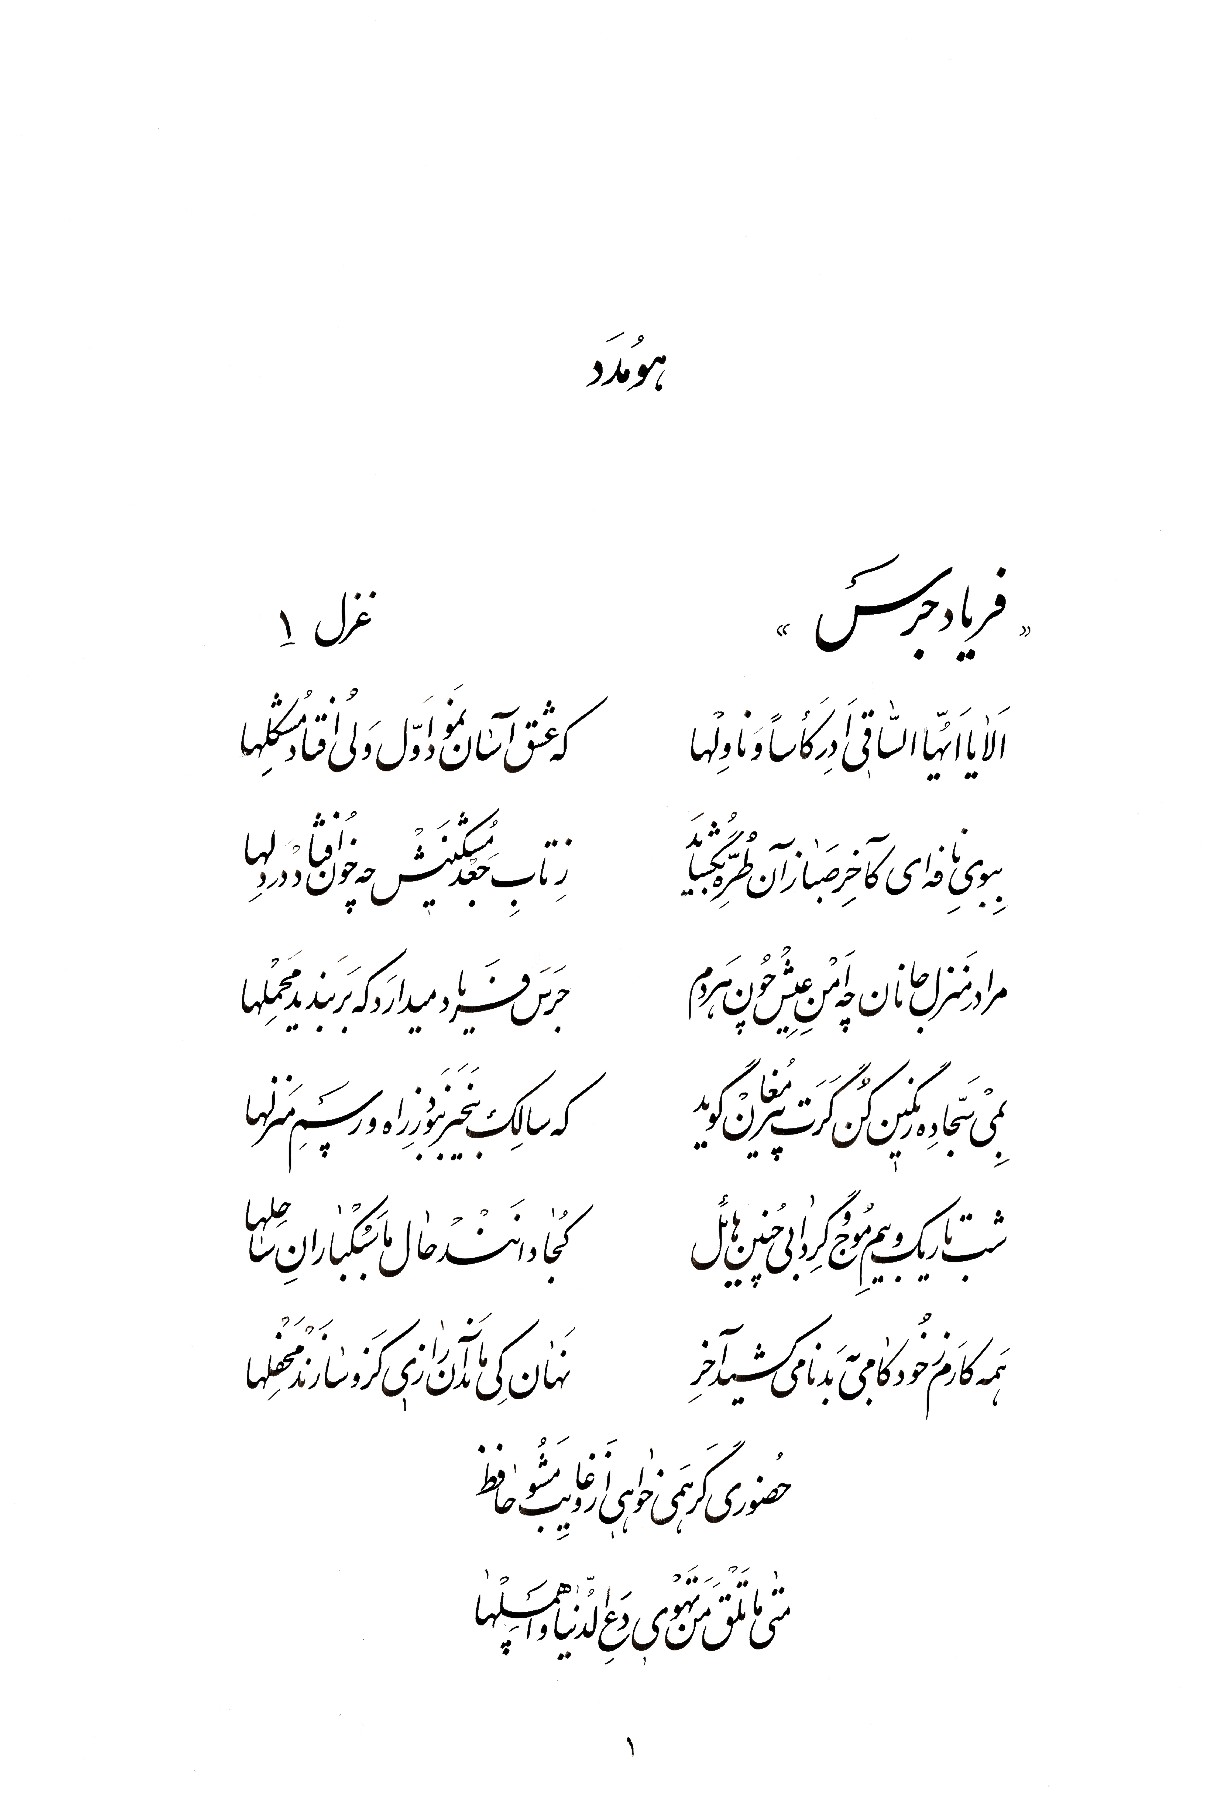 هو مدد
« فریاد جرس » غزل ۱
اَلا یا اَیُّها السّاقی اَدِر کَأساً وَ ناوِلْها که عشق آسان نمود اَوّل وَلی اُفتاد مُشکِلها
بِبویِ نافه‌ای کآخِر صَبا زان طُرّه بُگشایَد زِ تابِ جَعْدِ مُشکینَش چه خون اُفتاد در دِلها
مرا در مَنزلِ جانان چه اَمْنِ عیش چون هردم جَرَس فَریاد میدارَد که بَربَندید مَحْمِلها
بِمیْ سَجّاده رَنگین کُن گَرَت پیرِ مُغان گوید که سالِک بیخَبر نَبوَد زِ راه و رَسمِ مَنزلها
شب تاریک و بیمِ مُوج و گِردابی چُنین هائِل کُجا دانَنْد حالِ ما سَبُکْبارانِ ساحِلها
هَمه کارَم زِ خُود کامی به بَدنامی کشید آخِر نَهان کِی مانَد آن رازی کَزو سازَند مَحْفِلها
حُضوری گَر هَمی خواهی اَزو غایِب مَشُو حافظ
مَتی ما تَلْقَ مَنْ تَهْوی دَعِ الدُّنیا وَ اَهمِلْها
۱